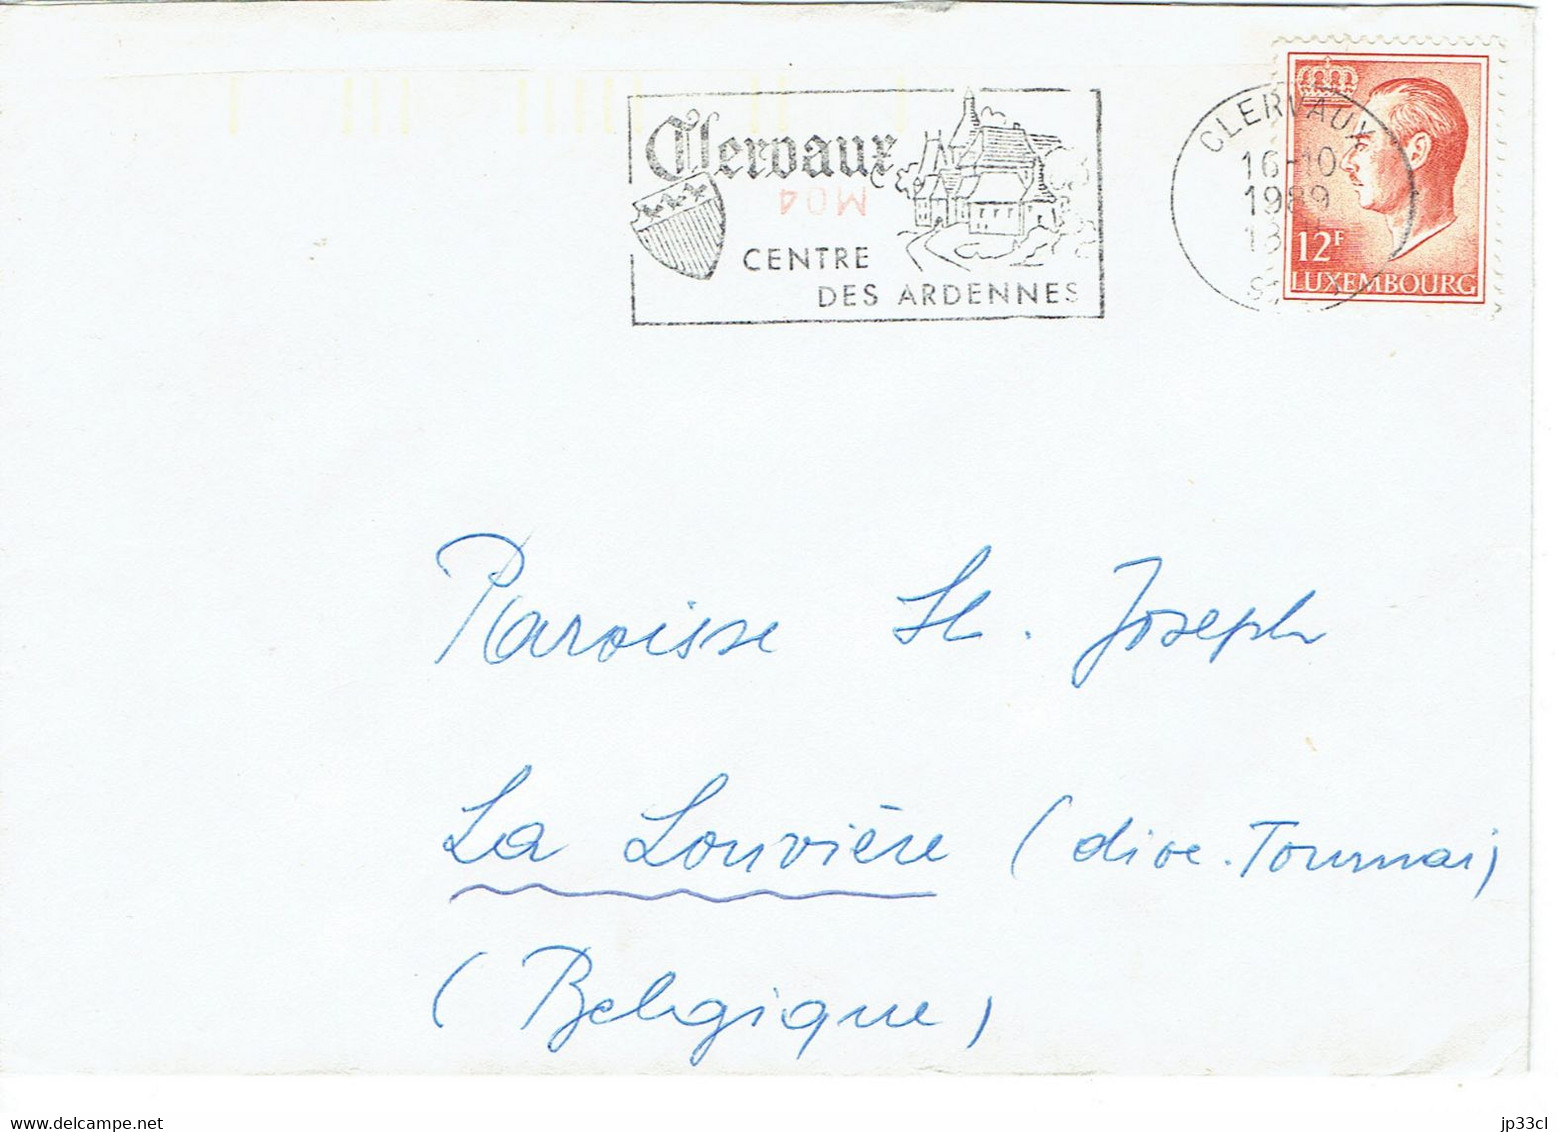 Clervaux
M04
CENTRE
DES ARDENNES
CLERVAUX
16-10
1989
12F
LUXEMBOURG
Paroisse St. Joseph
La Louvière (dioc. Tournai)
(Belgique)
jp33cl